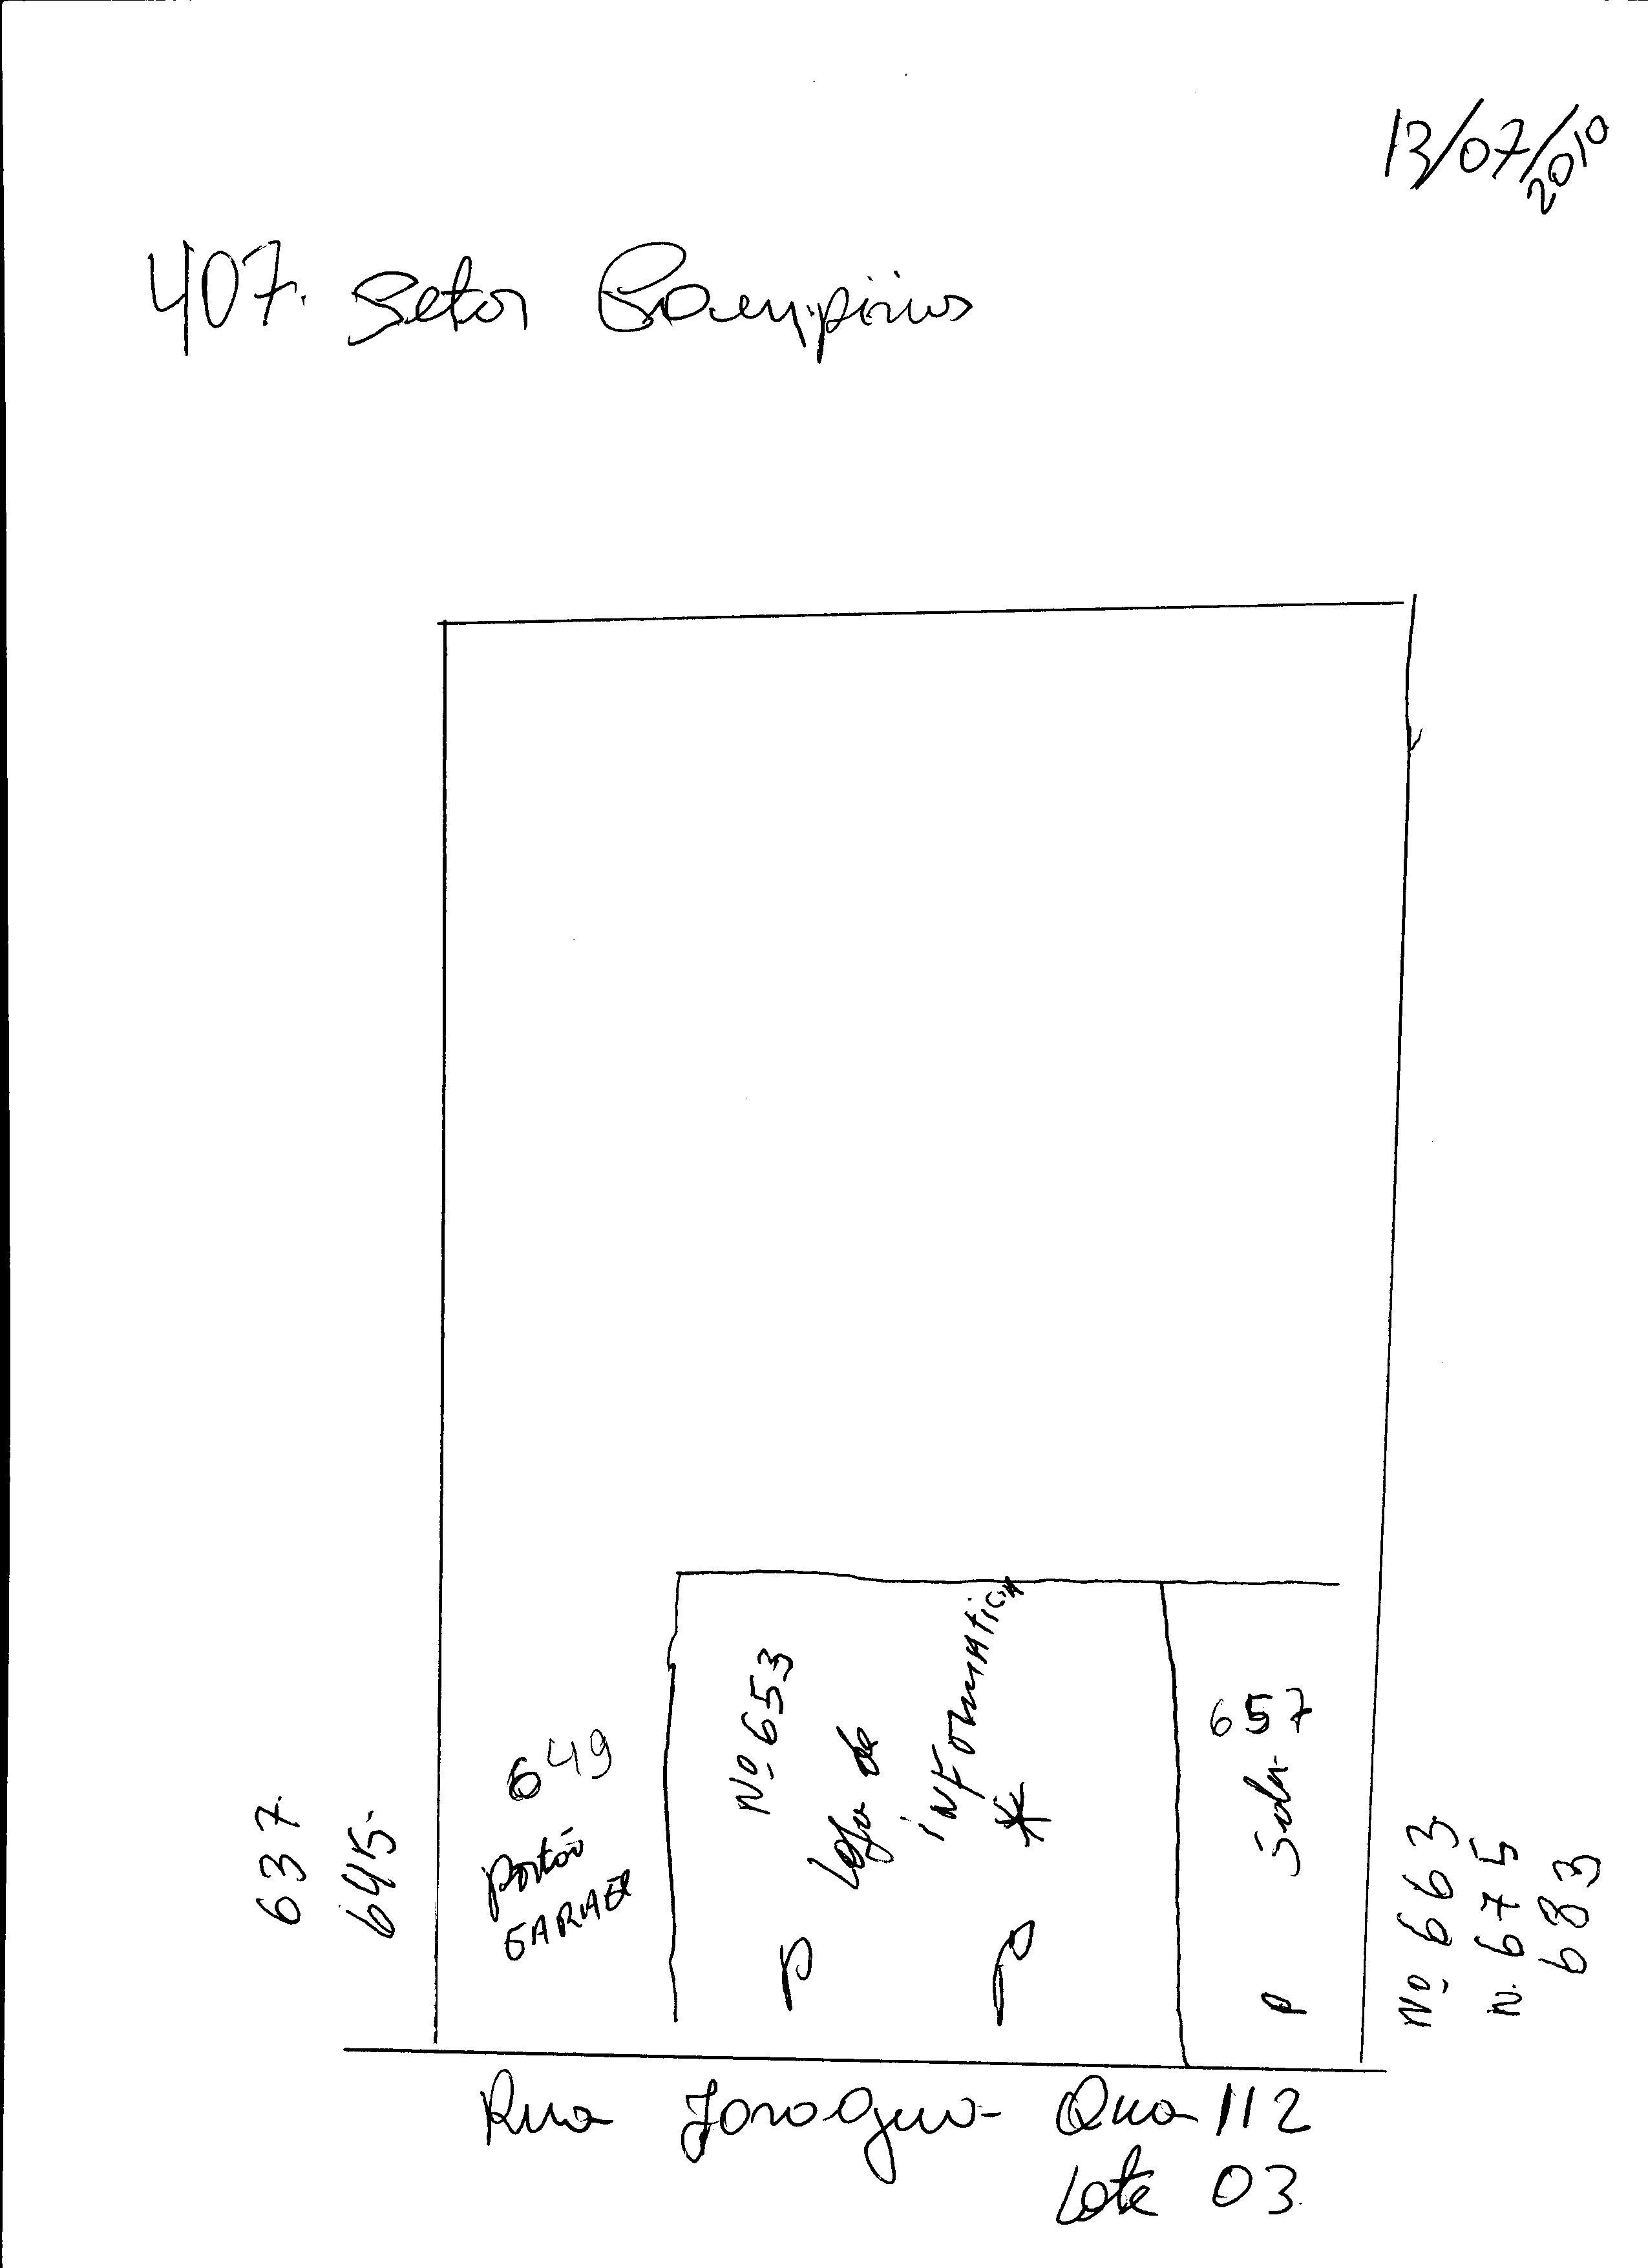 13/07/2010
407. Setor Campinas
649
portão
GARAGE
Nº 653
Loja de
iNFORMATICA
*
P
P
657
Sala
P
637
645
Nº 663
N. 675
683
Rua Qua 112
Lote 03